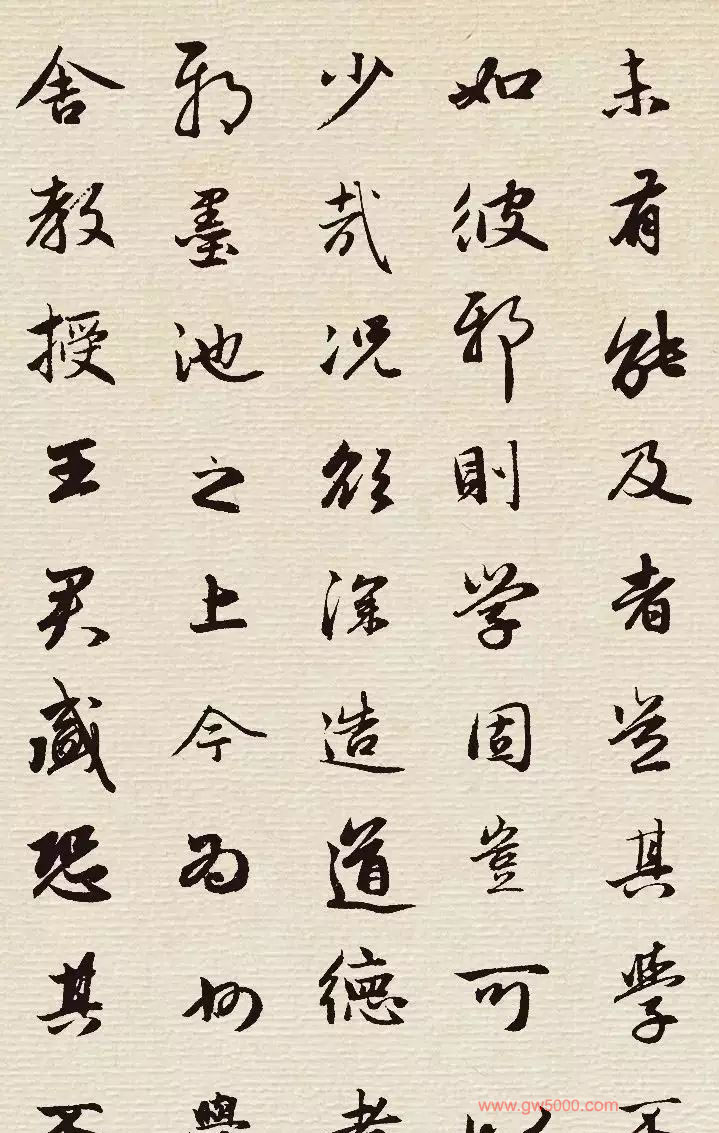 未有能及者豈其學不
如彼邪則学固豈可以
少哉况欲深造道德者
邪墨池之上今为州學
舍教授王君盛恐其不
www.gw5000.com